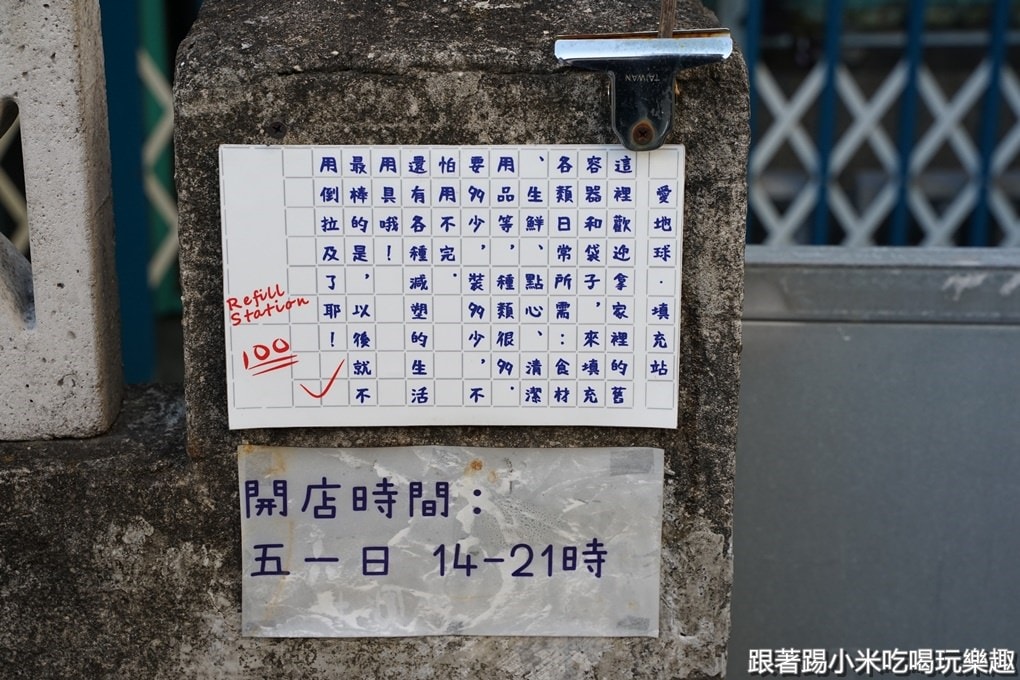 愛地球·填充站
這裡歡迎拿家裡的舊
容器和袋子，來填充
各類日常所需：食材
、生鮮、點心、清潔
用品等，種類很多.
要多少，裝多少，不
怕用不完.
還有各種減塑的生活
用具哦！
最棒的是，以後就不
用倒拉及了耶！
Refill
Station
100
TAIWAN
開店時間：
五一日 14-21時
跟著踢小米吃喝玩樂趣